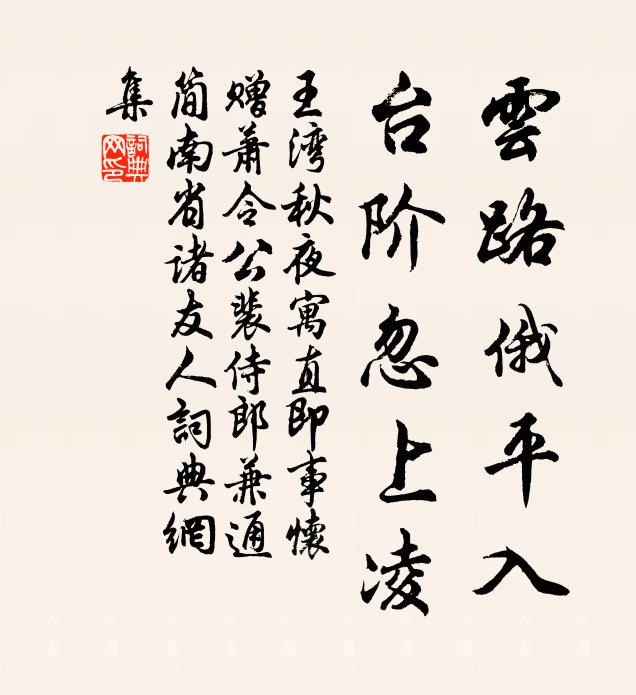 雲路俄平入
台阶忽上凌
王湾秋夜寓直即事懷
赠萧令公裴侍郎兼通
简南省诸友人詞典網
集
詞典
网印